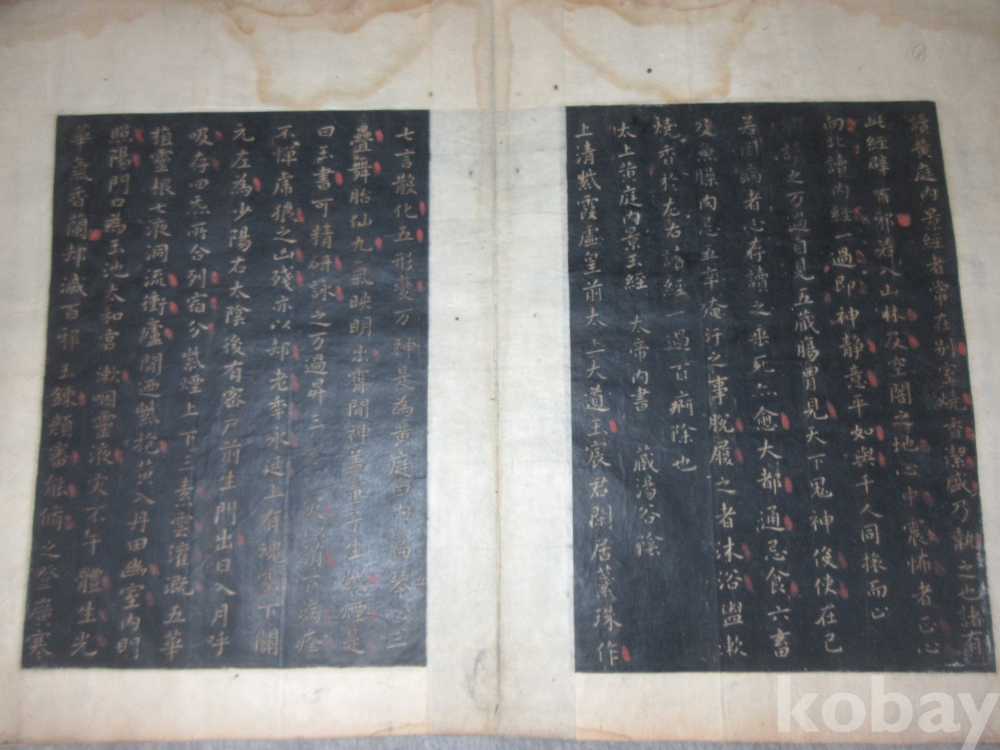 讀黃庭內景經者常在別室燒香潔盛乃執之也諸有
此經辟百邪入山林及空闇之地心中震怖者正心
向北讀內經一過即神靜意平如與千人同旅而止
之万過自見五藏腸胃見天下鬼神役使在己
若困病者心存讀之垂死亦愈大都通忌食六畜
及魚臊內忌五辛淹汙之事脫履之者沐浴盥漱
燒香於左右誦經一過百痾除也
太上黃庭內景玉經 大帝內書 藏湯谷陰
上清紫霞虛皇前太上大道玉宸君閒居蘂珠作
七言散化五形變万神是為黃庭曰內篇琴心三
疊舞胎仙九氣映明出霄閒神蓋童子生紫煙是
曰玉書可精研詠之万過昇三天 下病痊
不憚虎狼之山殘亦以却老年永延上有魂靈下關
元左為少陽右太陰後有密戶前生門出日入月呼
吸存四炁所合列宿分紫煙上下三素雲灌溉五華
植靈根七液洞流衝廬閒迴紫抱黃入丹田幽室內明
照陽門口為玉池太和宮漱咽靈液灾不午體生光
華氣香蘭却滅百邪玉鍊顏審能脩之登廣寒
kobay